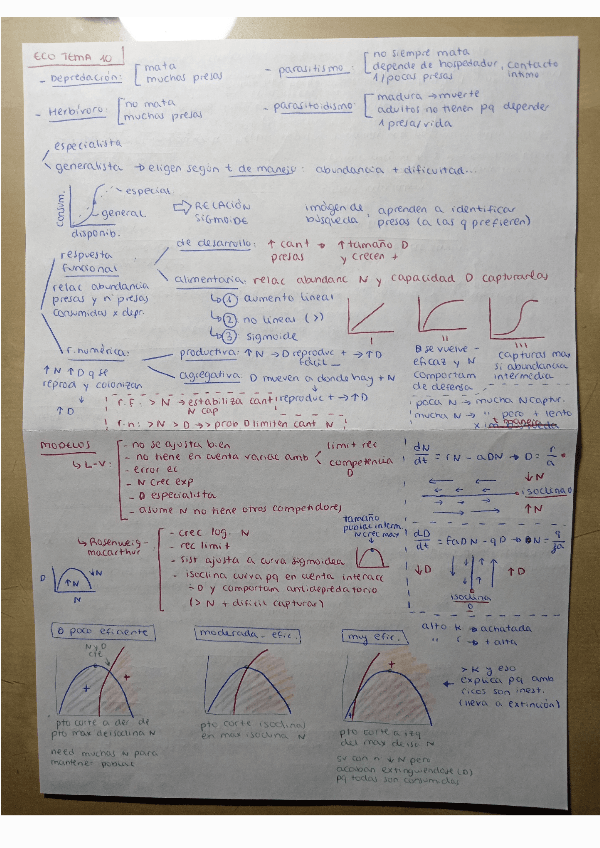 ECO TEMA 10
- Depredación: mata
muchas presas
- parasitismo: no siempre mata
depende de hospedador, contacto íntimo
1/pocas presas
- Herbívoro: no mata
muchas presas
- parasitoidismo: madura → muerte
adultos no tienen pq depender
1 presa/vida
especialista
generalista → eligen según t de manejo: abundancia + dificultad...
consum.
especial.
general
disponib.
⇒ RELACIÓN
SIGMOIDE
imágen de
búsqueda: aprenden a identificar
presas (a las q prefieren)
respuesta
funcional
relac abundancia
presas y nº presas
consumidas x depr.
de desarrollo: ↑ cant → ↑ tamaño D
presas y crecen +
alimentaria: relac abundanc N y capacidad D capturarlas
↳ 1 aumento lineal
↳ 2 no lineas (>)
↳ 3 sigmoide
I
II
III
D se vuelve -
eficaz y N
comportam
de defensa
capturas max
si abundancia
intermedia
r. numérica:
↑ N ↑ D q se
reprod y colonizan
↑ D
productiva: ↑ N → D reproduc + → ↑ D
fácil
agregativa: D mueven a donde hay + N
reproduc + → ↑ D
r.f: > N → estabiliza cant
N cap
r.n: > N > D → > prob D limiten cant N
poca N → mucha N captur.
mucha N → " pero + lento
MODELOS
↳ L-V:
- no se ajusta bien
- no tiene en cuenta variac amb
limit rec
competencia
D
- error ec
- N crec exp
- D especialista
- asume N no tiene otros competidores
dN/dt = rN - aDN → D = r/a
↓ N
isoclina D
↑ N
↳ Rosenweig-
macarthur
- crec log. N
- rec limit
- sist ajusta a curva sigmoidea
- isoclina curva pq en cuenta interacc
D y comportam antidepredatorio
(> N + dificil capturar)
tamaño
poblal interm.
N crec max
D
↑N
↓N
N
dD/dt = faDN - qD → N = q/fa
↓ D
↑ D
isoclina
D
alto k → achatada
" r → + alta
D poco eficiente
moderada. efic.
muy efic.
N y D
cte
> k y eso
explica pq amb
ricos son inest.
(lleva a extinción)
pto corte a der de
pto max de isoclina N
need muchas N para
mantener poblac
pto corte isoclinas
en max isoclina N
pto corte a izq
del max de iso N
↓ N pero
acaban extinguiendose (D)
pq todas son consumidas